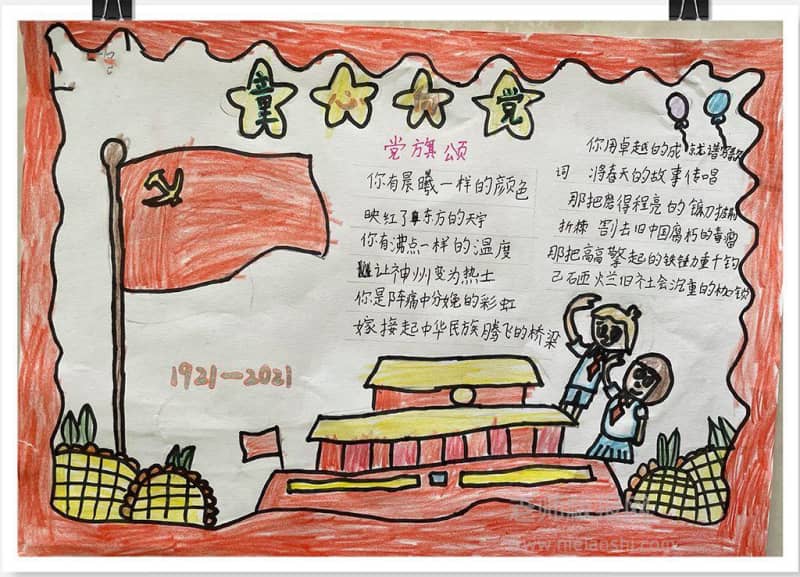 童心向党
党旗颂
你有晨曦一样的颜色
映红了东方的天宇
你有沸点一样的温度
让神州变为热士
你是阵痛中分娩的彩虹
嫁接起中华民族腾飞的桥梁
你用卓越的成就谱写
词 将春天的故事传唱
那把磨得程亮的镰刀披荆
折棘 割去旧中国腐朽的毒瘤
那把高高擎起的铁锤力重千钧
己砸烂旧社会沉重的枷锁
1921—2021